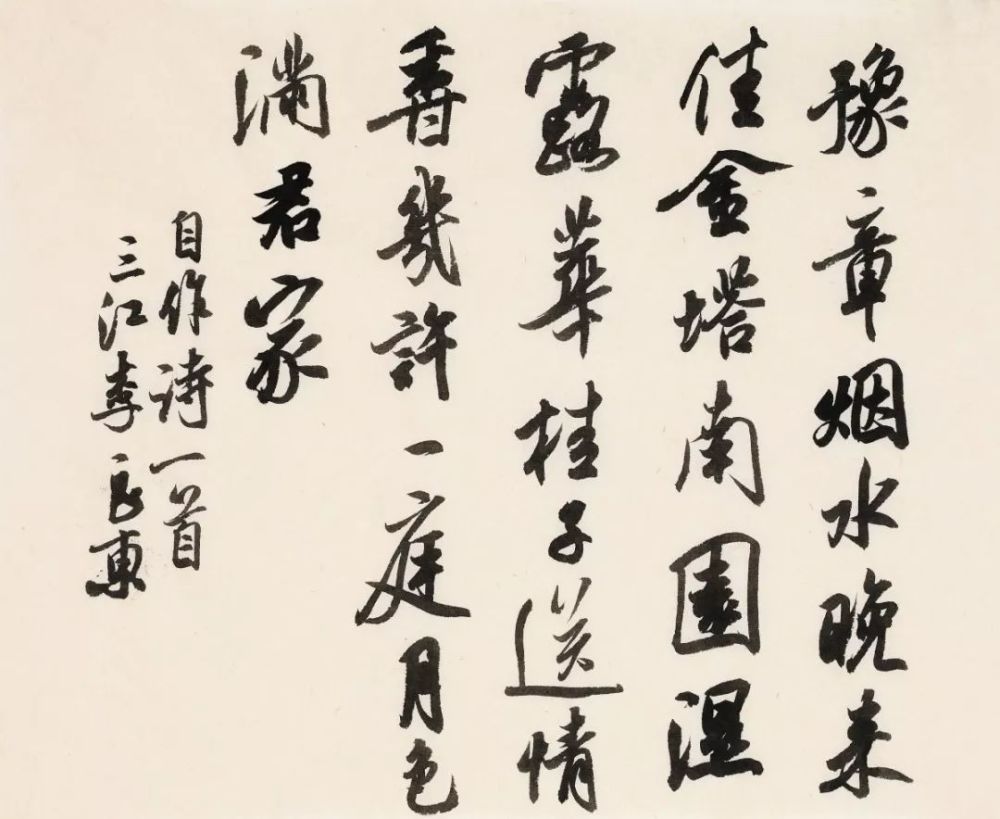 豫章烟水晚来
佳金塔南園湿
露華桂子送情
香幾許一庭月色
滿君家
自作詩一首
三江李良東